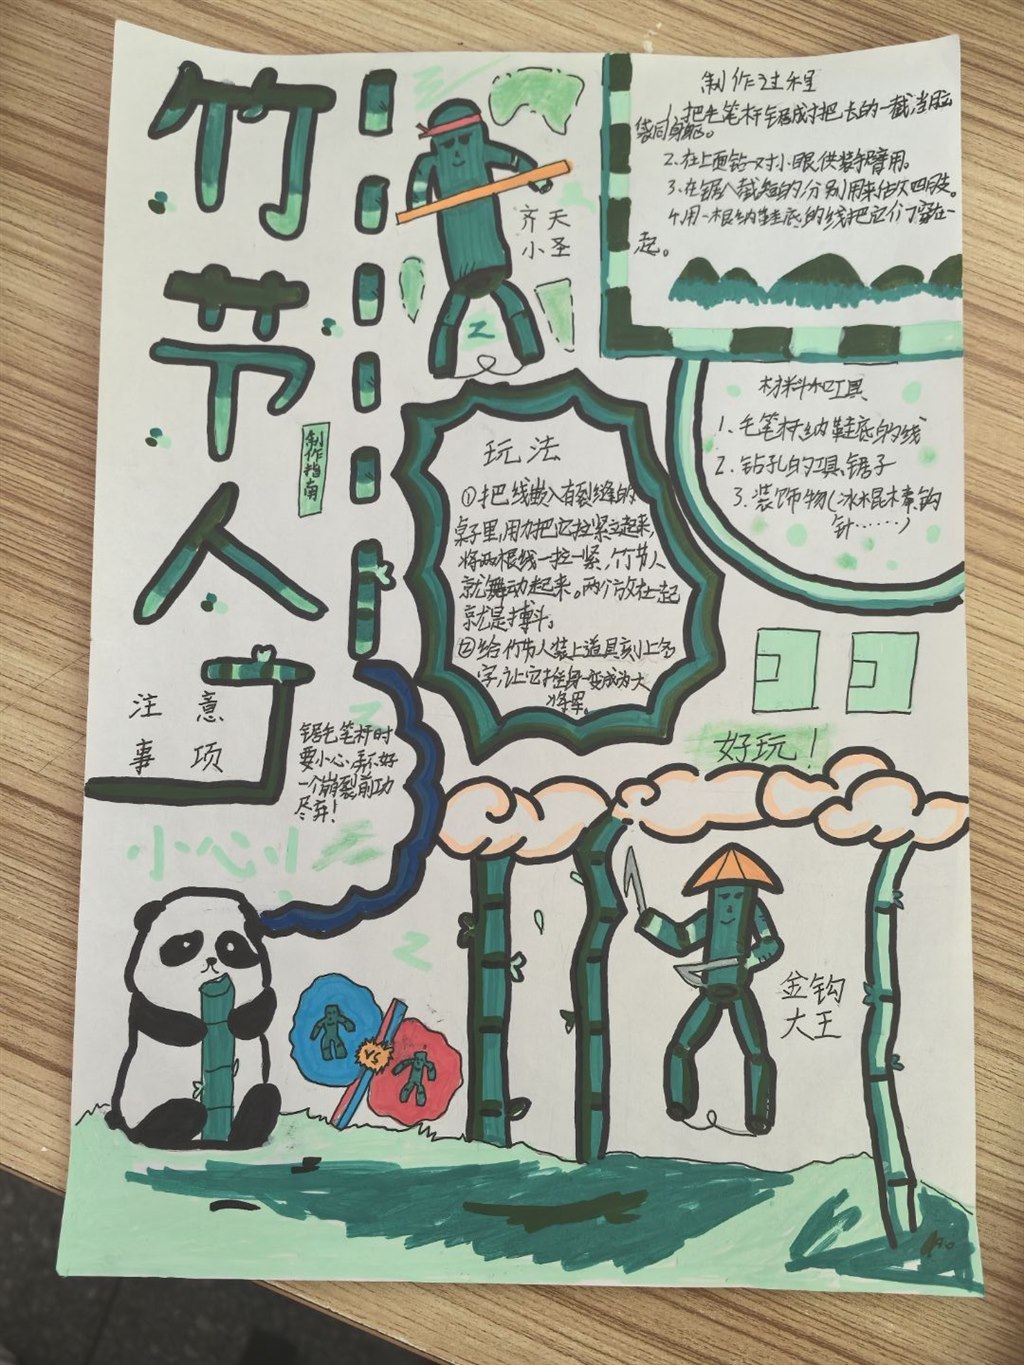 竹节人
制作指南
齐天
小圣
制作过程
1.把毛笔杆锯成寸把长的一截,当脑
袋同身躯。
2.在上面钻一对小眼,供装手臂用。
3.在锯八截短的,分别用来作次四肢。
4.用一根纳鞋底的线把它们穿在一
起。
材料和工具
1、毛笔杆、纳鞋底的线
2、钻孔的工具、锯子
3、装饰物(冰棍棒、钩
针……)
玩法
①把线嵌入有裂缝的
桌子里,用力把它拉紧立起来,
将两根线一拉一紧,竹节人
就舞动起来。两个放在一起
就是搏斗。
②给竹节人装上道具刻上名
字,让它摇身一变成为大
将军。
好玩!
注意
事项
锯毛笔杆时
要小心,弄不好
一个崩裂前功
尽弃!
小心!
VS
金钩
大王